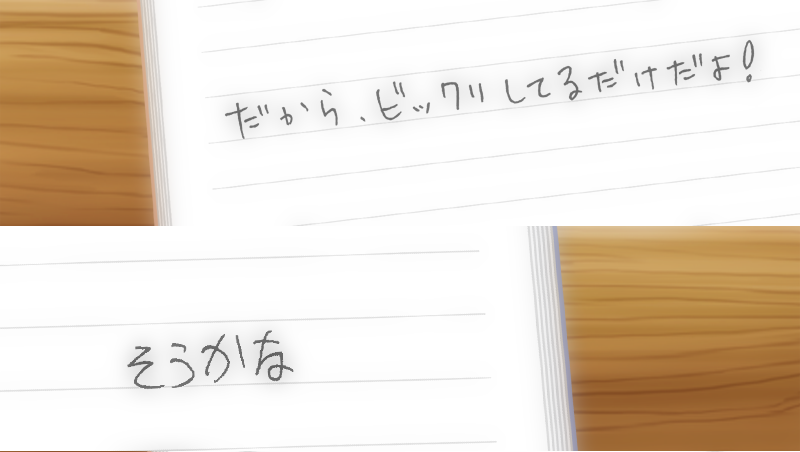 だから、ビックリしてるだけだよ!
そうかな